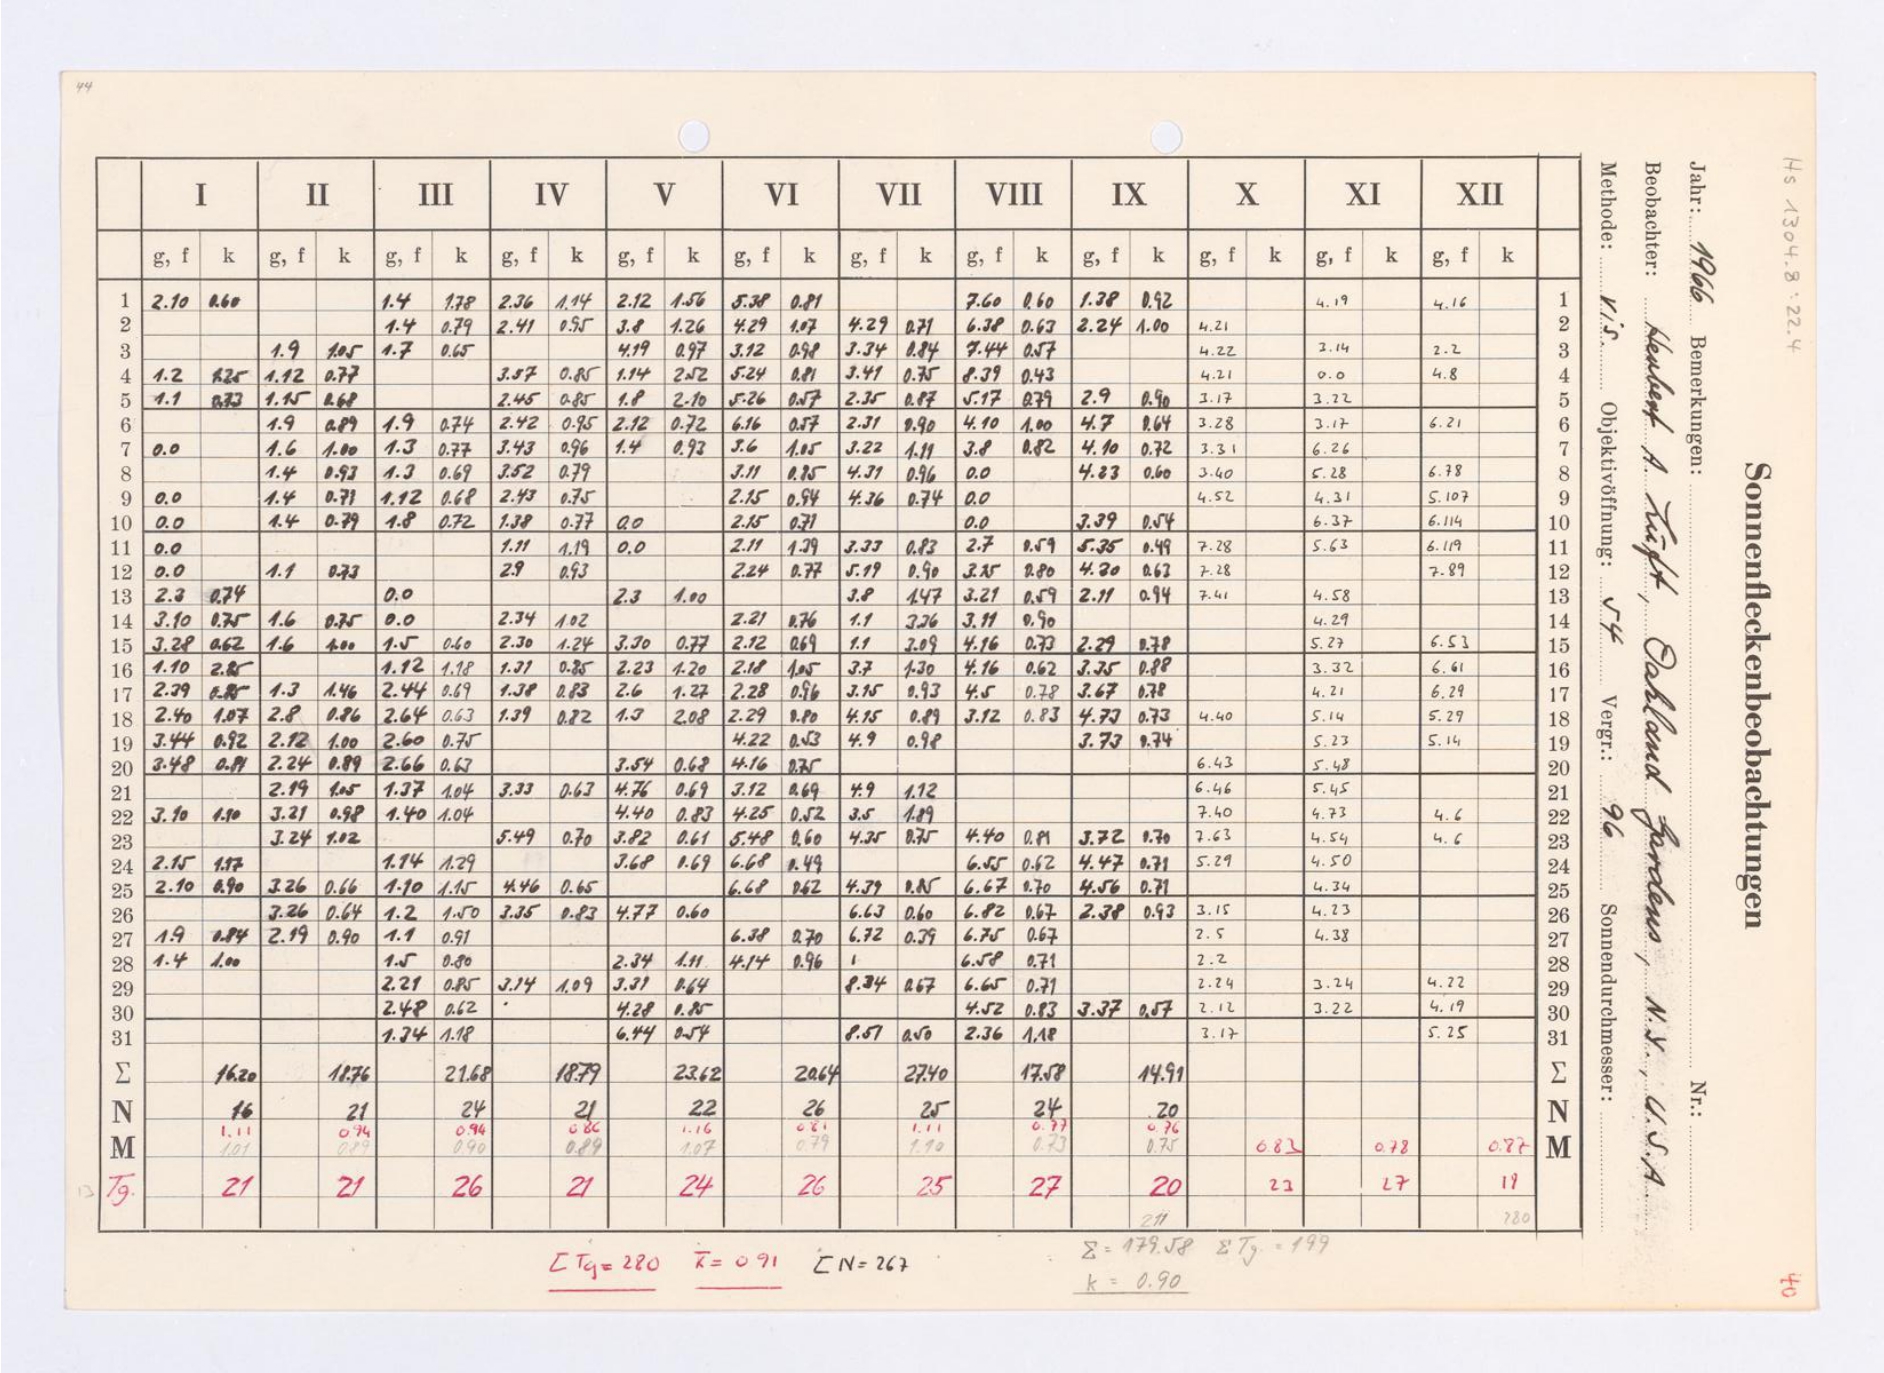 44
I II III IV V VI VII VIII IX X XI XII
g, f k g, f k g, f k g, f k g, f k g, f k g, f k g, f k g, f k g, f k g, f k g, f k
1 2.10 0.60 1.4 1.78 2.36 1.14 2.12 1.56 5.38 0.81 7.60 0.60 1.38 0.92 4.19 4.16 1
2 1.4 0.79 2.41 0.95 3.8 1.26 4.29 1.07 4.29 0.71 6.38 0.63 2.24 1.00 4.21 2
3 1.9 1.05 1.7 0.65 4.19 0.97 3.12 0.98 3.34 0.84 7.44 0.57 4.22 3.14 2.2 3
4 1.2 1.25 1.12 0.77 3.57 0.85 1.14 2.52 5.24 0.81 3.41 0.75 8.39 0.43 4.21 0.0 4.8 4
5 1.1 0.73 1.15 0.68 2.45 0.85 1.8 2.10 5.26 0.57 2.35 0.87 5.17 0.79 2.9 0.90 3.17 3.22 5
6 1.9 0.89 1.9 0.74 2.42 0.95 2.12 0.72 6.16 0.57 2.31 0.90 4.10 1.00 4.7 0.64 3.28 3.17 6.21 6
7 0.0 1.6 1.00 1.3 0.77 3.43 0.96 1.4 0.93 3.6 1.05 3.22 1.11 3.8 0.82 4.10 0.72 3.31 6.26 7
8 1.4 0.93 1.3 0.69 3.52 0.79 3.11 0.85 4.31 0.96 0.0 4.23 0.60 3.40 5.28 6.78 8
9 0.0 1.4 0.71 1.12 0.68 2.43 0.75 2.15 0.94 4.36 0.74 0.0 4.52 4.31 5.107 9
10 0.0 1.4 0.79 1.8 0.72 1.38 0.77 0.0 2.15 0.71 0.0 3.39 0.54 6.37 6.114 10
11 0.0 1.11 1.19 0.0 2.11 1.39 3.33 0.83 2.7 0.59 5.35 0.49 7.28 5.63 6.119 11
12 0.0 1.1 0.73 2.9 0.93 2.24 0.77 5.19 0.90 3.25 0.80 4.30 0.63 7.28 7.89 12
13 2.3 0.74 0.0 2.3 1.00 3.8 1.47 3.21 0.59 2.11 0.94 7.41 4.58 13
14 3.10 0.75 1.6 0.75 0.0 2.34 1.02 2.21 0.76 1.1 3.36 3.11 0.90 4.29 14
15 3.28 0.62 1.6 1.00 1.5 0.60 2.30 1.24 3.30 0.77 2.12 0.69 1.1 3.09 4.16 0.73 2.29 0.78 5.27 6.53 15
16 1.10 2.85 1.12 1.18 1.31 0.85 2.23 1.20 2.18 1.05 3.7 1.30 4.16 0.62 3.35 0.88 3.32 6.61 16
17 2.39 0.85 1.3 1.46 2.44 0.69 1.38 0.83 2.6 1.27 2.28 0.96 3.15 0.93 4.5 0.78 3.67 0.78 4.21 6.29 17
18 2.40 1.07 2.8 0.86 2.64 0.63 1.39 0.82 1.3 2.08 2.29 0.80 4.15 0.89 3.12 0.83 4.73 0.73 4.40 5.14 5.29 18
19 3.44 0.92 2.12 1.00 2.60 0.75 4.22 0.53 4.9 0.98 3.73 0.74 5.23 5.14 19
20 3.48 0.81 2.24 0.89 2.66 0.63 3.54 0.68 4.16 0.75 6.43 5.48 20
21 2.19 1.05 1.37 1.04 3.33 0.63 4.76 0.69 3.12 0.69 4.9 1.12 6.46 5.45 21
22 3.10 1.10 3.21 0.98 1.40 1.04 4.40 0.83 4.25 0.52 3.5 1.89 7.40 4.73 4.6 22
23 3.24 1.02 5.49 0.70 3.82 0.61 5.48 0.60 4.35 0.75 4.40 0.81 3.72 0.70 7.63 4.54 4.6 23
24 2.15 1.17 1.14 1.29 3.68 0.69 6.68 0.49 6.55 0.62 4.47 0.71 5.29 4.50 24
25 2.10 0.90 3.26 0.66 1.10 1.15 4.46 0.65 6.68 0.62 4.39 0.85 6.67 0.70 4.56 0.71 4.34 25
26 3.26 0.64 1.2 1.50 3.35 0.83 4.77 0.60 6.63 0.60 6.82 0.67 2.38 0.93 3.15 4.23 26
27 1.9 0.84 2.19 0.90 1.1 0.91 6.38 0.70 6.72 0.39 6.75 0.67 2.5 4.38 27
28 1.4 1.00 1.5 0.80 2.34 1.11 4.14 0.96 6.58 0.71 2.2 28
29 2.21 0.85 3.14 1.09 3.31 0.64 8.34 0.67 6.65 0.71 2.24 3.24 4.22 29
30 2.48 0.62 4.28 0.85 4.52 0.83 3.37 0.57 2.12 3.22 4.19 30
31 1.34 1.18 6.44 0.54 8.51 0.50 2.36 1.18 3.17 5.25 31
Σ 16.20 18.76 21.68 18.79 23.62 20.64 27.40 17.58 14.91 Σ
N 16 21 24 21 22 26 25 24 20 N
1.11 0.94 0.94 0.86 1.16 0.81 1.11 0.77 0.76
M 1.01 0.89 0.90 0.89 1.07 0.79 1.10 0.73 0.75 0.83 0.78 0.87 M
13 Tg. 21 21 26 21 24 26 25 27 20 23 27 19
211 280
Σ Tg = 280 k = 0.91 Σ N = 267
Σ = 179.58 Σ Tg. = 199
k = 0.90
Sonnenfleckenbeobachtungen
Jahr: 1966 Bemerkungen: Nr.:
Beobachter: Herbert A. Luft, Oakland Gardens, N.Y., U.S.A.
Methode: vis. Objektivöffnung: 54 Vergr.: 96 Sonnendurchmesser:
Hs 1304.8:22.4
40